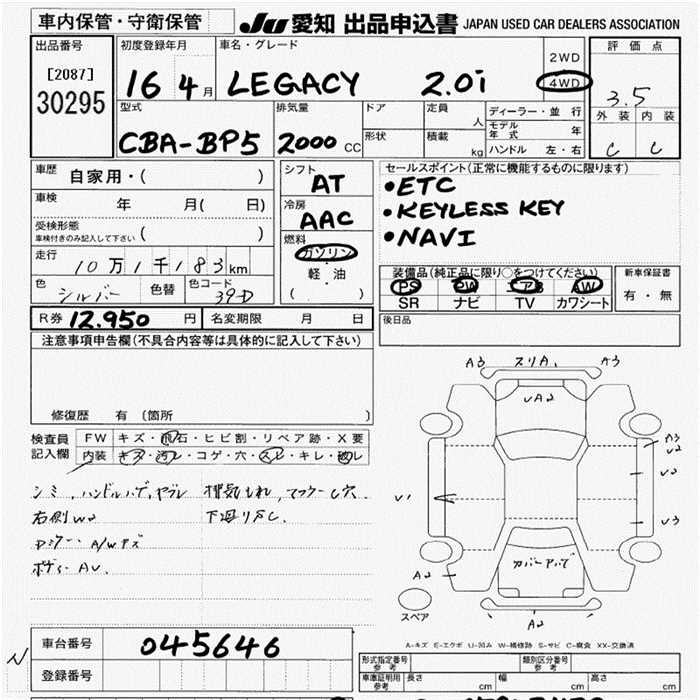 車内保管・守衛保管
JU 愛知 出品申込書 JAPAN USED CAR DEALERS ASSOCIATION
出品番号
[2087]
30295
初度登録年月
16 4月
車名・グレード
LEGACY 2.0i
2WD
4WD
評価点
3.5
外装 内装
C C
型式
CBA-BP5
排気量
2000 CC
ドア
形状
定員
人
積載
kg
ディーラー・並行
モデル年式 年
ハンドル 左・右
車歴
自家用・( )
車検
年 月( 日)
受検形態
車検付きのみ記入して下さい ( )
走行
10万1千183km
色
シルバー
色替
色コード
39D
シフト
AT
冷房
AAC
燃料
ガソリン
・
軽・油
( )
セールスポイント(正常に機能するものに限ります)
•ETC
•KEYLESS KEY
•NAVI
装備品(純正品に限り○をつけてください)
PS PW エアB AW
SR ナビ TV カワシート
新車保証書
有・無
R券 12.950 円
名変期限 月 日
後日品
注意事項申告欄(不具合内容等は具体的に記入して下さい)
修復歴 有(箇所 )
検査員
記入欄
FW キズ・飛石・ヒビ割・リペア跡・X要
内装 キズ・汚レ・コゲ・穴・スレ・キレ・破レ
シミ、ハンドルハゲ、ヤブレ
右側W2
ボディーAU
排気もれ、マフラーC穴
下廻りSC.
A3 スリA, A3
UA2
A3
U2
U2
U3
U1
カバーアハゲ
A2
A2
スペア
A-キズ E-エクボ U-凹み W-補修跡 S-サビ C-腐食 XX-交換済
車台番号
045646
登録番号
形式指定番号
参考
類別区分番号
参考
車庫証明用
参考
長さ cm
幅 cm
高さ cm